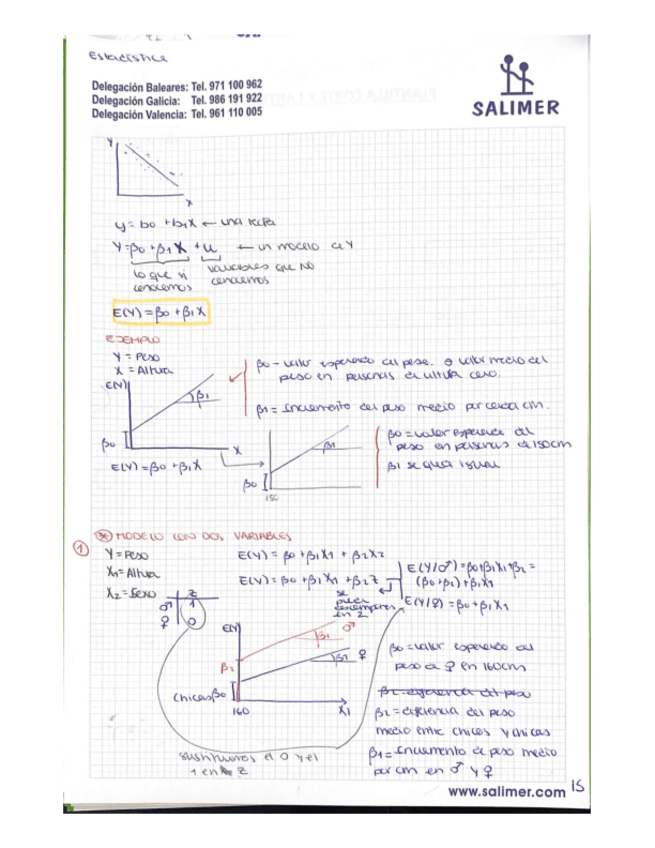 Estadística
Delegación Baleares: Tel. 971 100 962
Delegación Galicia: Tel. 986 191 922
Delegación Valencia: Tel. 961 110 005
SALIMER
Y
X
y = b0 + b1X ← una recta
Y = β0 + β1X + u ← un modelo de Y
lo que sí conocemos
variables que NO conocemos
E(Y) = β0 + β1X
EJEMPLO
Y = Peso
X = Altura
E(Y)
β1
β0
X
E(Y) = β0 + β1X
β0 - valor esperado del peso. o valor medio del
peso en personas de altura cero.
β1 = Incremento del peso medio por cada cm.
β1
β0
150
β0 = valor esperado del
peso en personas de 150cm
β1 se queda igual
① MODELO CON DOS VARIABLES
Y = Peso
X1 = Altura
X2 = Sexo
Z
♂ 1
♀ 0
E(Y) = β0 + β1X1 + β2X2
E(Y) = β0 + β1X1 + β2Z
se puede descomponer en 2
E(Y/♂) = β0+β1X1+β2 =
(β0+β2)+β1X1
E(Y/♀) = β0+β1X1
E(Y)
β1 ♂
β1 ♀
β2
chicas β0
160
X1
β0 = valor esperado del
peso de ♀ en 160cm
β2 = diferencia del peso
β2 = diferencia del peso
medio entre chicos y chicas
β1 = Incremento de peso medio
por cm en ♂ y ♀
sustituimos el 0 y el
1 en Z
www.salimer.com
15